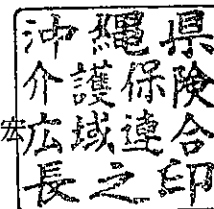 沖縄県
介護保険
宏
広域連合
長之印